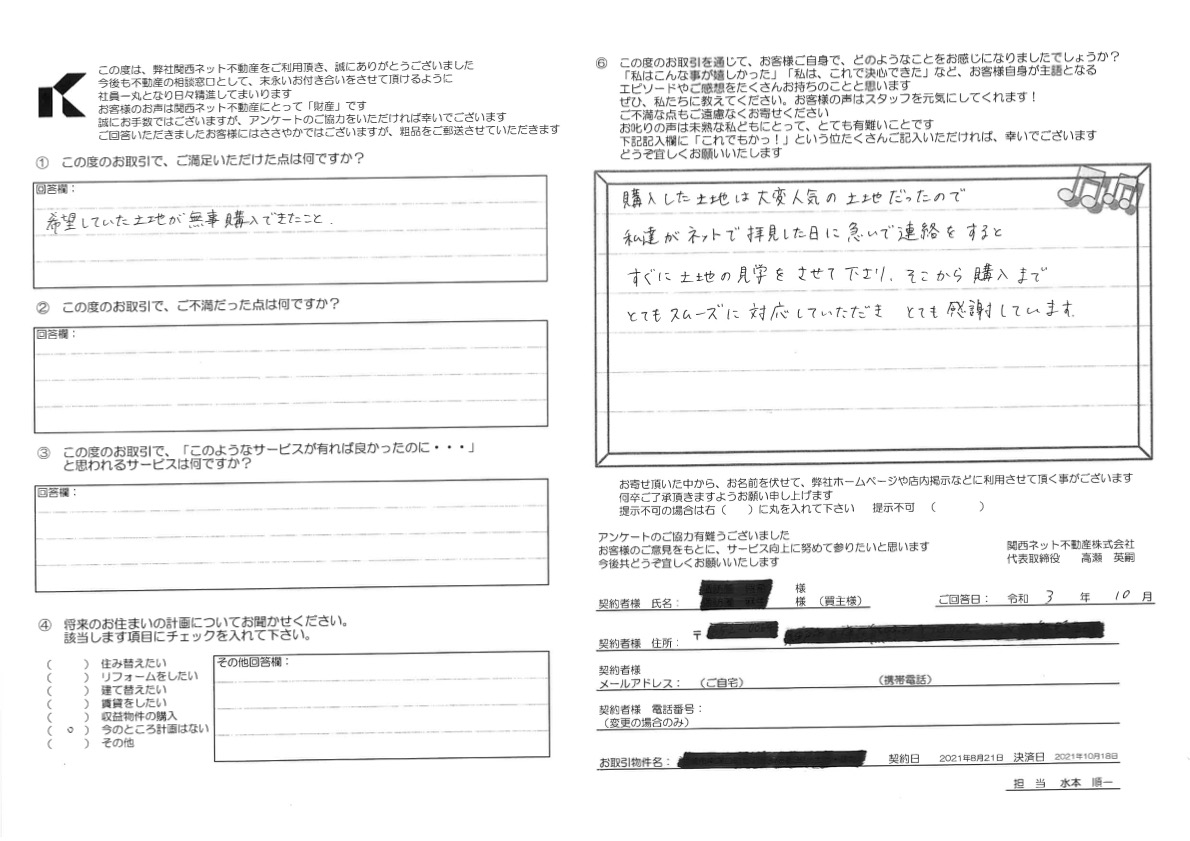 この度は、弊社関西ネット不動産をご利用頂き、誠にありがとうございました
今後も不動産の相談窓口として、末永いお付き合いをさせて頂けるように
社員一丸となり日々精進してまいります
お客様のお声は関西ネット不動産にとって「財産」です
誠にお手数ではございますが、アンケートのご協力をいただければ幸いでございます
ご回答いただきましたお客様にはささやかではございますが、粗品をご郵送させていただきます
① この度のお取引で、ご満足いただけた点は何ですか？
回答欄：
希望していた土地が無事購入できたこと.
② この度のお取引で、ご不満だった点は何ですか？
回答欄：
③ この度のお取引で、「このようなサービスが有れば良かったのに・・・」
と思われるサービスは何ですか？
回答欄：
④ 将来のお住まいの計画についてお聞かせください。
該当します項目にチェックを入れて下さい。
（　　）住み替えたい
（　　）リフォームをしたい
（　　）建て替えたい
（　　）賃貸をしたい
（　　）収益物件の購入
（　○　）今のところ計画はない
（　　）その他
その他回答欄：
⑥ この度のお取引を通じて、お客様ご自身で、どのようなことをお感じになりましたでしょうか？
「私はこんな事が嬉しかった」「私は、これで決心できた」など、お客様自身が主語となる
エピソードやご感想をたくさんお持ちのことと思います
ぜひ、私たちに教えてください。お客様の声はスタッフを元気にしてくれます！
ご不満な点もご遠慮なくお寄せください
お叱りの声は未熟な私どもにとって、とても有難いことです
下記記入欄に「これでもかっ！」という位たくさんご記入いただければ、幸いでございます
どうぞ宜しくお願いいたします
購入した土地は大変人気の土地だったので
私達がネットで拝見した日に急いで連絡をすると
すぐに土地の見学をさせて下さり、そこから購入まで
とてもスムーズに対応していただき とても感謝しています.
お寄せ頂いた中から、お名前を伏せて、弊社ホームページや店内掲示などに利用させて頂く事がございます
何卒ご了承頂きますようお願い申し上げます
提示不可の場合は右（　　）に丸を入れて下さい　提示不可　（　　　　）
アンケートのご協力有難うございました
お客様のご意見をもとに、サービス向上に努めて参りたいと思います
今後共どうぞ宜しくお願いいたします
関西ネット不動産株式会社
代表取締役　高瀬　英嗣
様
契約者様　氏名：　様　（買主様）　ご回答日：　令和　3　年　10　月
契約者様　住所：　〒
契約者様
メールアドレス：　（ご自宅）　（携帯電話）
契約者様　電話番号：
（変更の場合のみ）
お取引物件名：　契約日　2021年8月21日　決済日　2021年10月18日
担　当　水本　順一